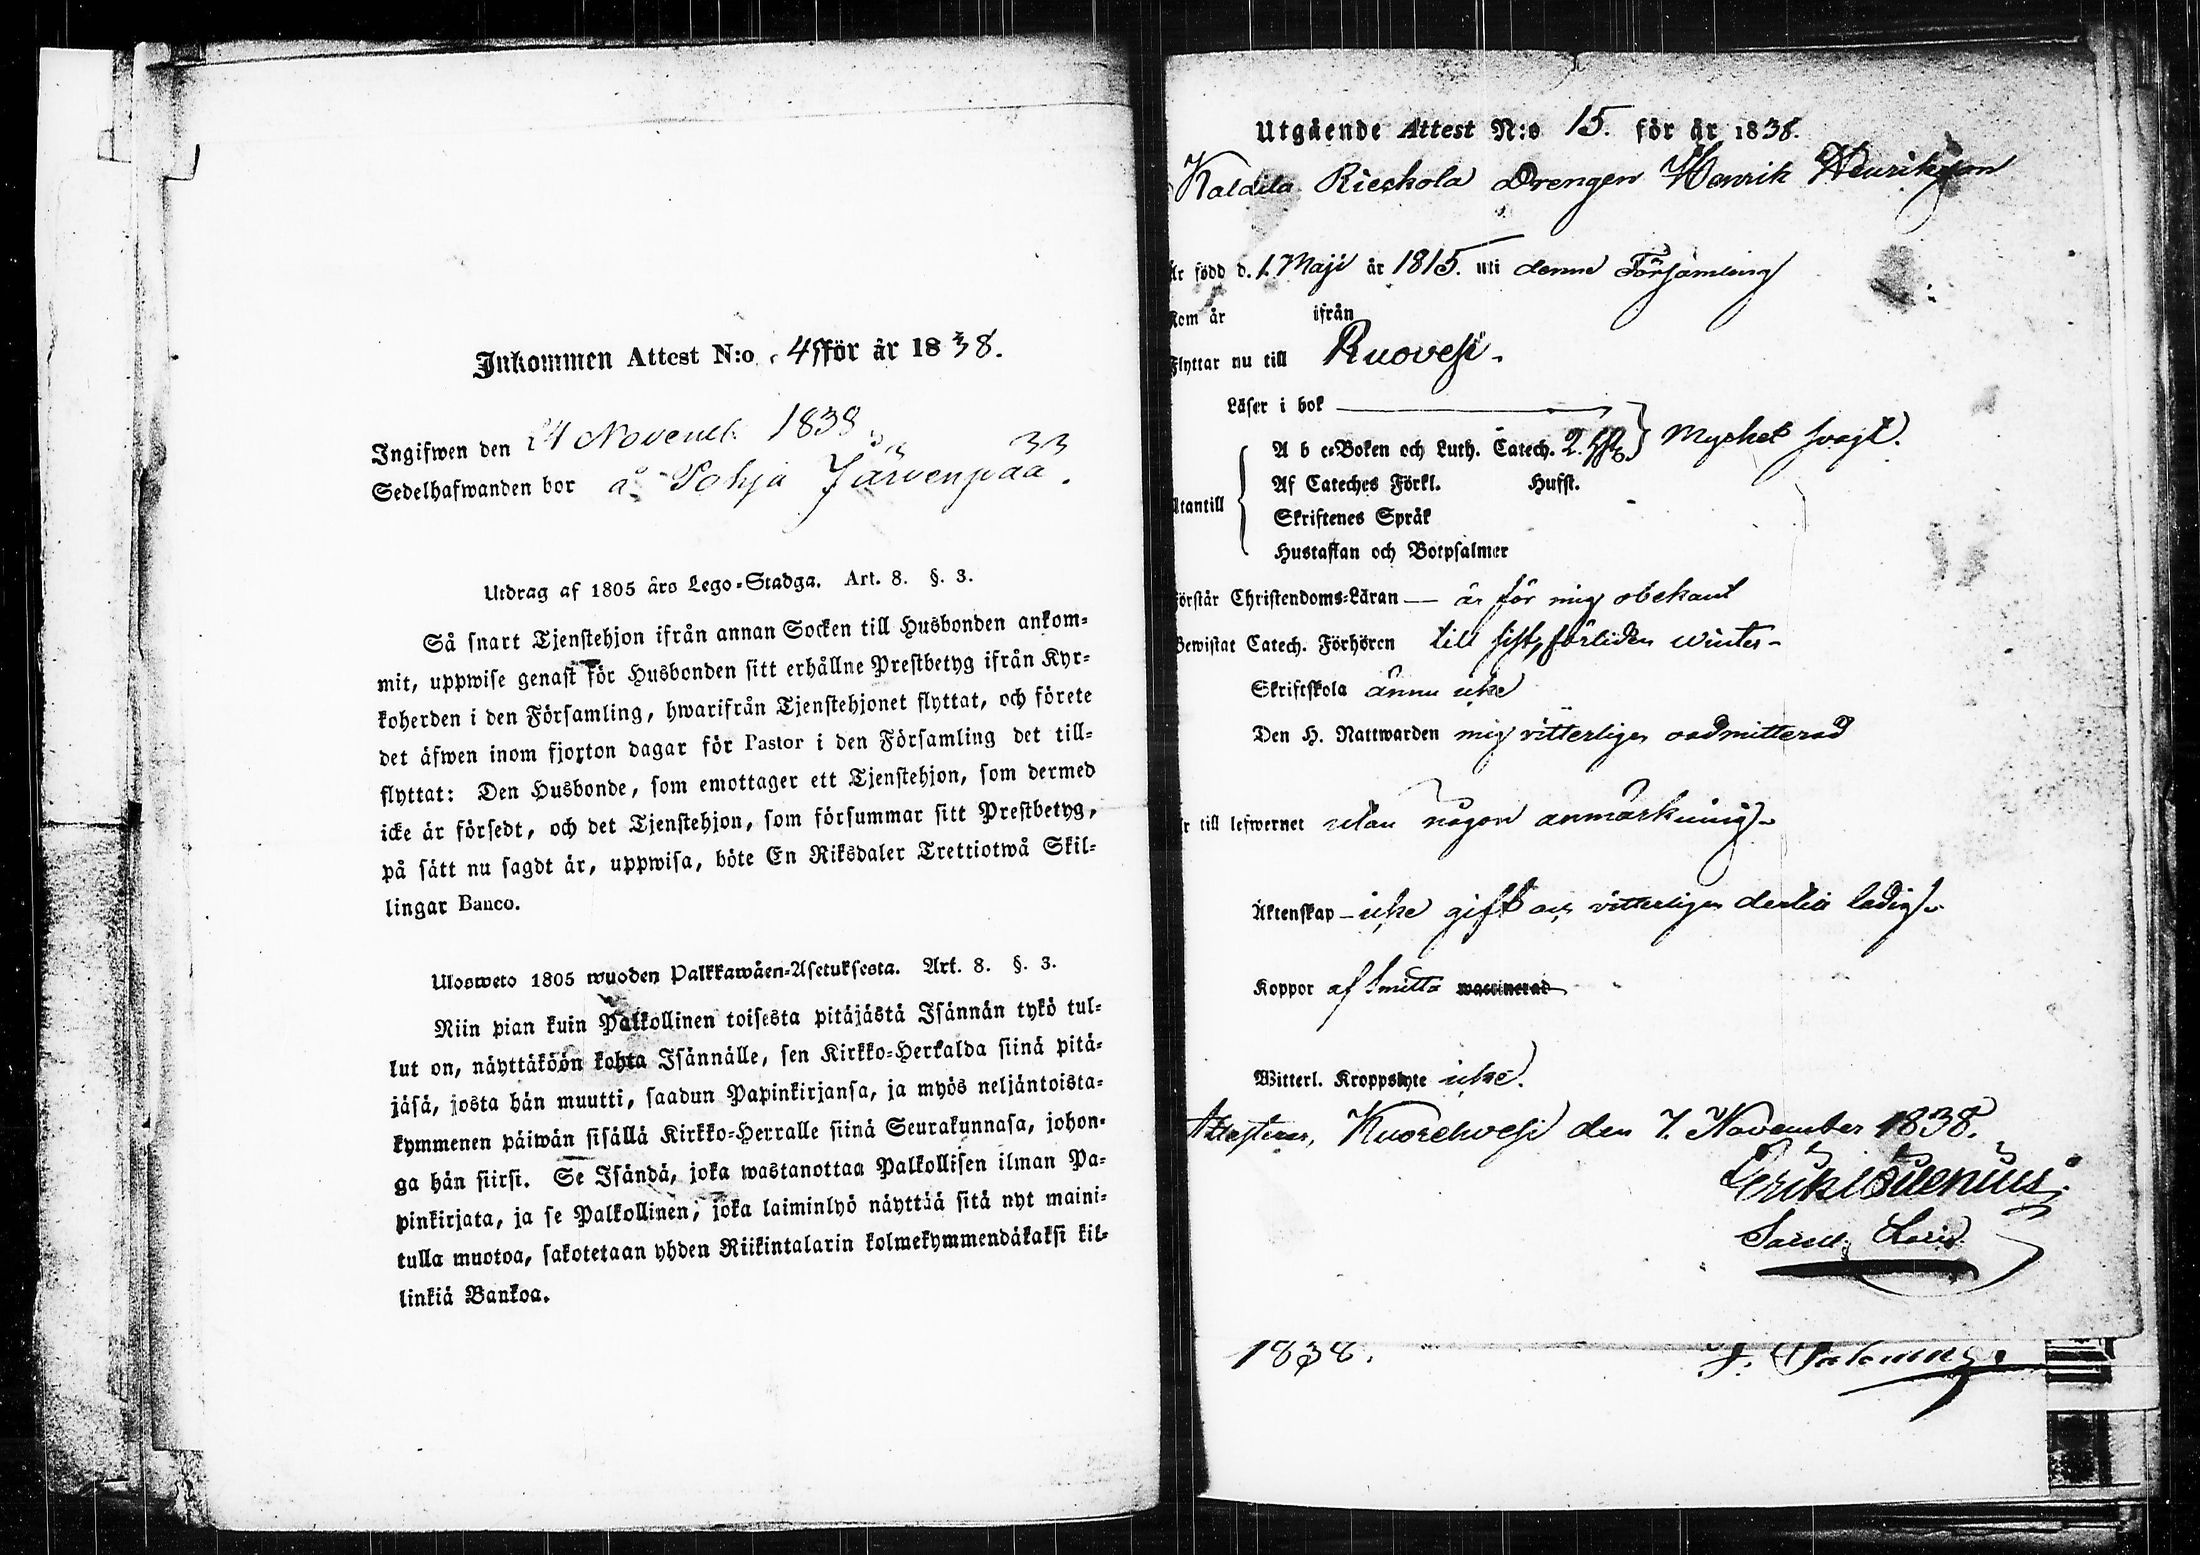 Inkommen Attest N:o 45 för år 1838.
Ingifwen den 24 Novemb. 1838.
33
Sedelhafwanden bor å Pohja Järvenpää.
Utdrag af 1805 års Lego-Stadga. Art. 8. §. 3.
Så snart Tjenstehjon ifrån annan Socken till Husbonden ankom-
mit, uppwise genast för Husbonden sitt erhållne Prestbetyg ifrån Kyr-
koherden i den Församling, hwarifrån Tjenstehjonet flyttat, och förete
det äfwen inom fjorton dagar för Pastor i den Församling det till-
flyttat: Den Husbonde, som emottager ett Tjenstehjon, som dermed
icke är försedt, och det Tjenstehjon, som försummar sitt Prestbetyg,
på sätt nu sagdt är, uppwisa, böte En Riksdaler Trettiotwå Skil-
lingar Banco.
Ulosweto 1805 wuoden Palkkawäen-Asetuksesta. Art. 8. §. 3.
Niin pian kuin Palkollinen toisesta pitäjästä Isännän tykö tul-
lut on, näyttäköön kohta Isännälle, sen Kirkko-Herralda siinä pitä-
jäsä, josta hän muutti, saadun Papinkirjansa, ja myös neljäntoista-
kymmenen päiwän sisällä Kirkko-Herralle siinä Seurakunnasa, johon-
ga hän siirsi. Se Isändä, joka wastanottaa Palkollisen ilman Pa-
pinkirjata, ja se Palkollinen, joka laiminlyö näyttää sitä nyt maini-
tulla muotoa, sakotetaan yhden Riikintalarin kolmekymmendäkaksi kil-
linkiä Bankoa.
Utgående Attest N:o 15. för år 1838.
Kaldila Rieskola Drengen Henrik Henriksson
Är född d. 1. Maji år 1815. uti denna Församling
Kom år ifrån
Flyttar nu till Ruovesi.
Läser i bok
A b c-Boken och Luth. Catech. 2. Mycket svagt.
Af Cateches Förkl. Hufst.
Utantill
Skriftenes Språk
Hustaflan och Botpsalmer
Förstår Christendoms-Läran — är för mig obekant
Bewistat Catech. Förhören till sistförliden winter
Skriftskola ännu icke
Den H. Nattwarden mig vitterligen oadmitterad
Är till lefwernet utan någon anmärkning
Äktenskap icke gift och vitterligen dertill ledig
Koppor af smitta waccinerad
Witterl. Kroppslyte icke.
Attesterar, Kuorehvesi den 7. November 1838.
Erik
1838.